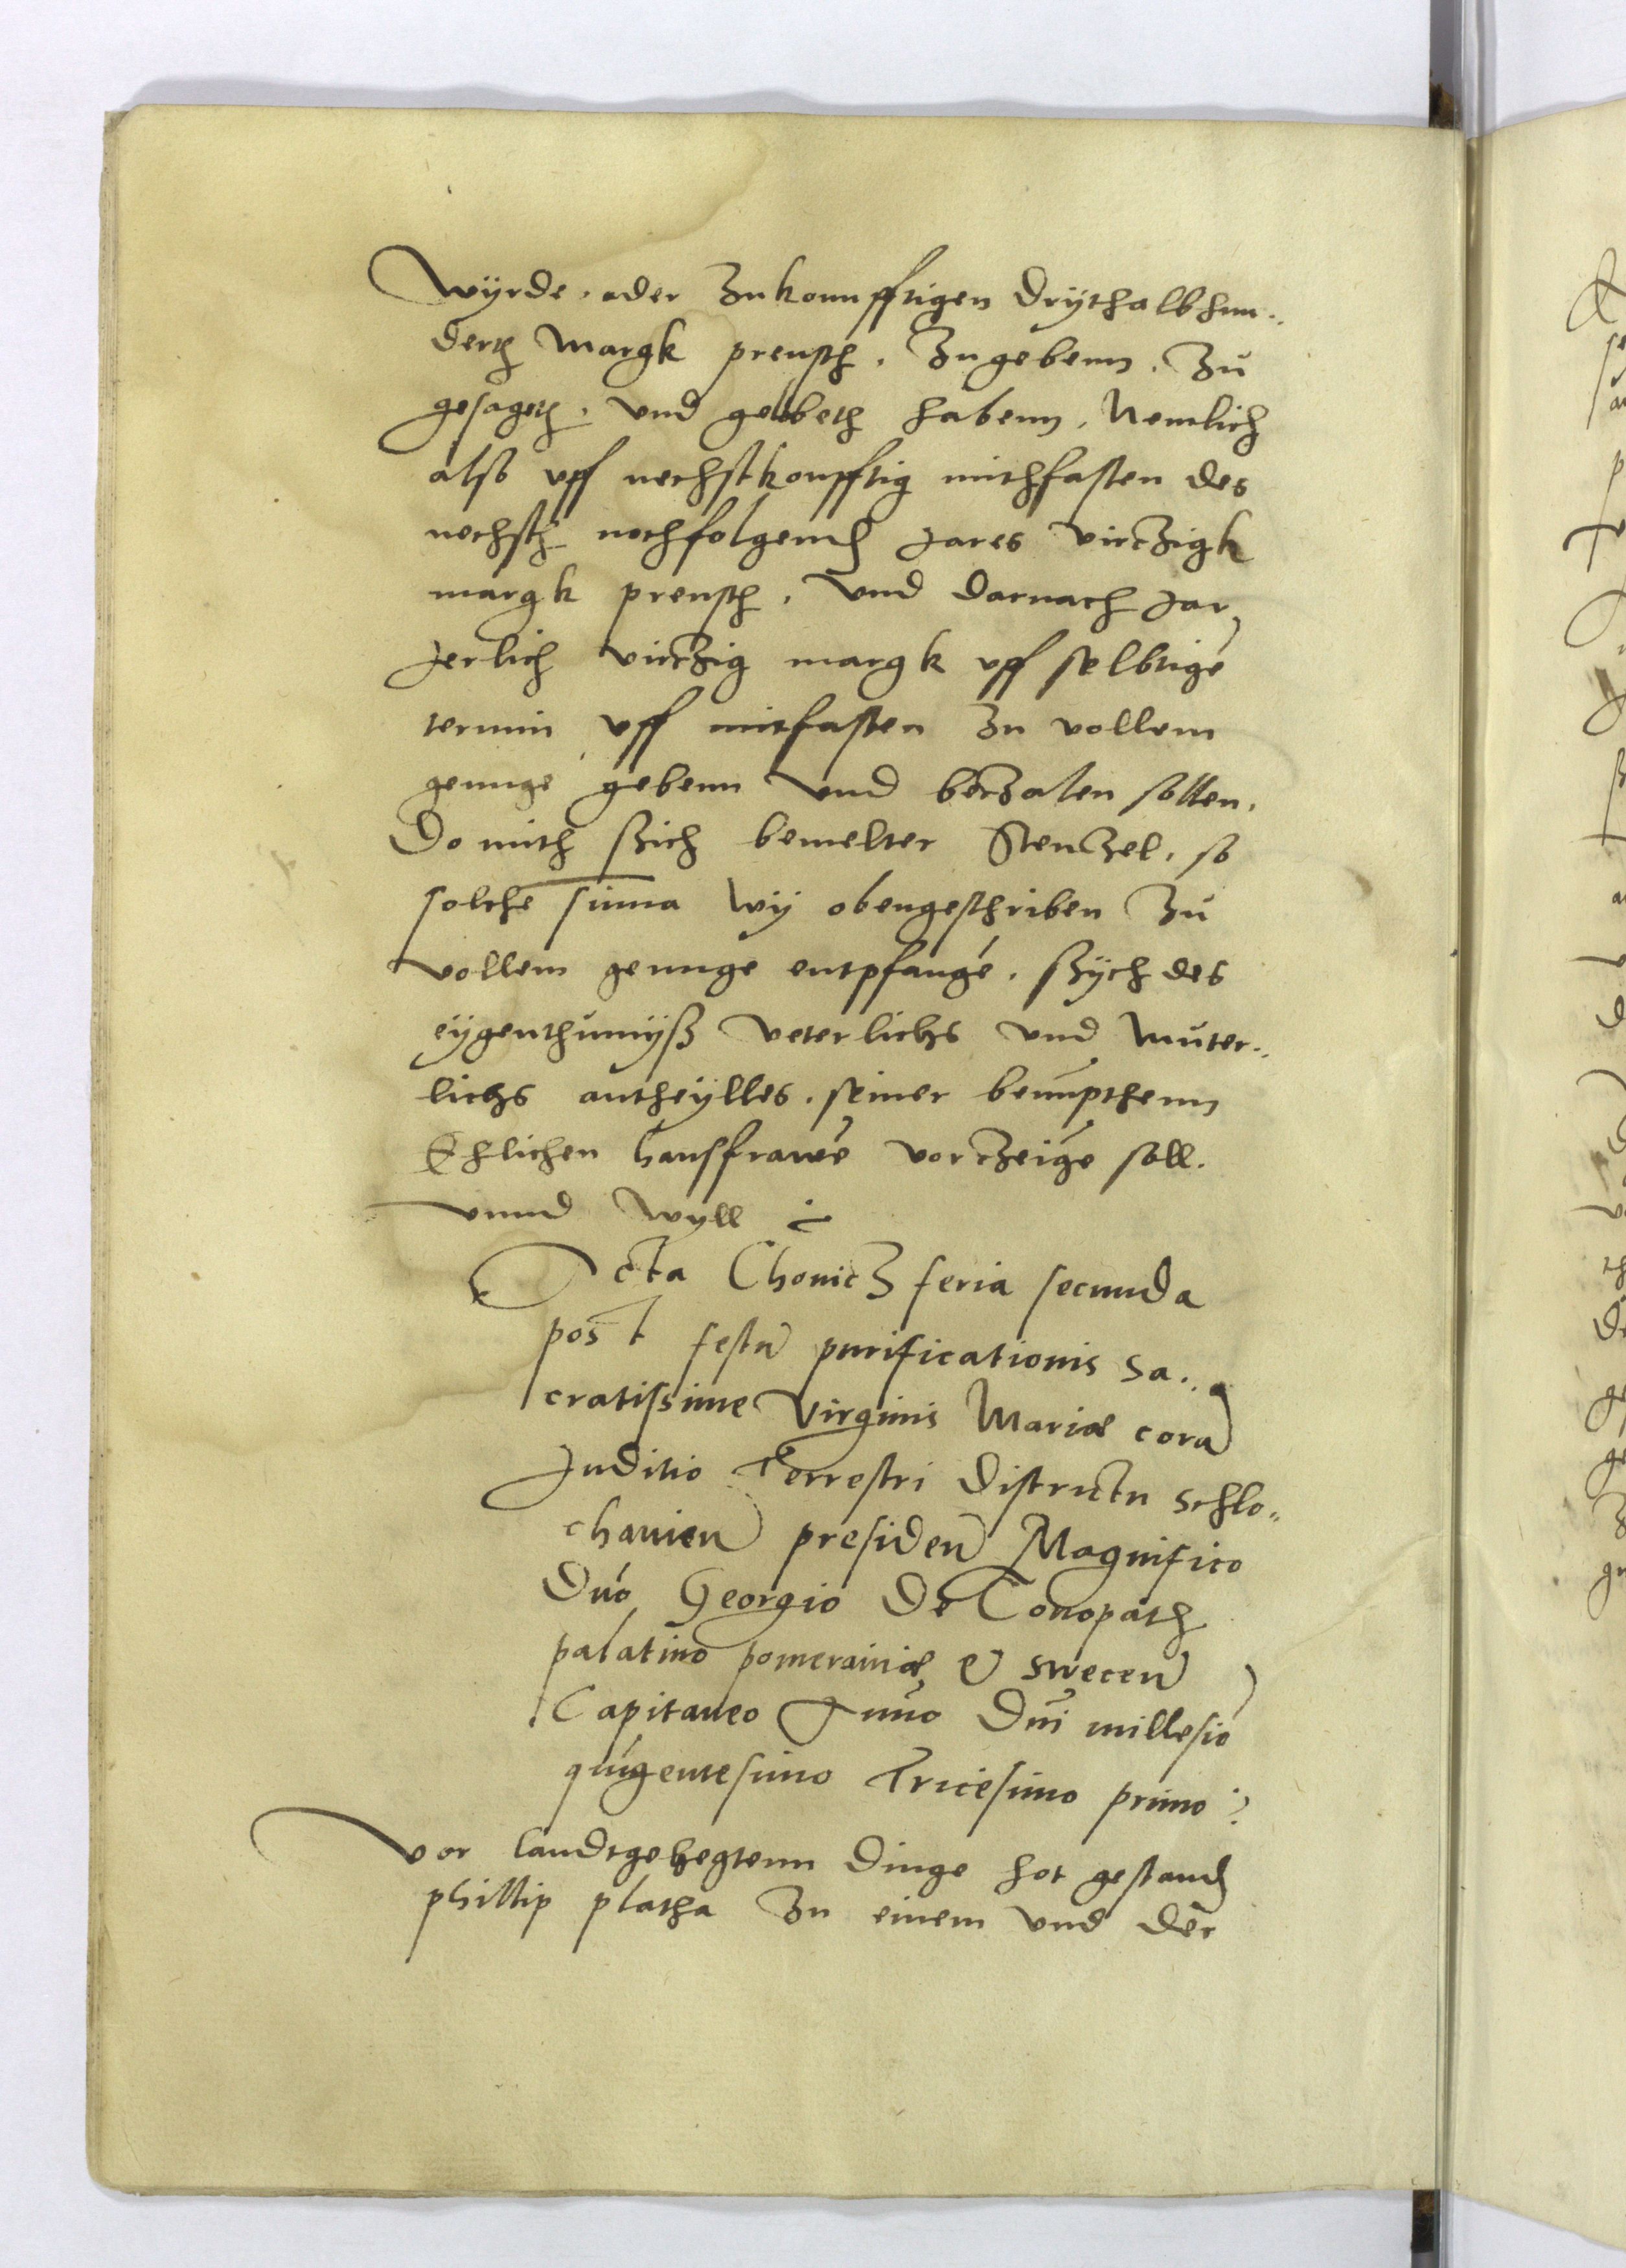 Wÿrde, ader Zukomfftigen Drÿthalbhun..
derth Margk preusch, Zugebenn, Zu
gesageth, und gelobeth habenn, Nemlich
also uff nechstkonfftig mithfasten des
nechsth nochfolgend Jares virczigk
margk preusch, Und darnach Jar
Jerlich virczig margk uff selbtige
termin uff mitfasten zu vollem
genuge gebenn Und beczalen sollen,
Do mith szich bemelter Stenczel, so
solche suma Wÿ obengeschriben Zu
vollem genuge entpfange, szÿch des
eÿgenthumÿsz veterlichs und Muter..
lichs antheÿlles, seiner benupthenn
Ehlichen hausfrawe vorczeige soll.
vnnd Wyll
Acta Chonicz feria secunda
post festu purificationis sa..
cratissime Virginis Mariæ cora
Juditio Terrestri districtu schlo..
chauien presiden Magnifico
Dno Georgio De Conopath
palatino pomeraniæ et swecen
Capitaneo Anno Dni millesio
quigentesimo Tricesimo primo
Vor landtgehegtenn Dinge hot gestand
phillip platha Zu einem und der